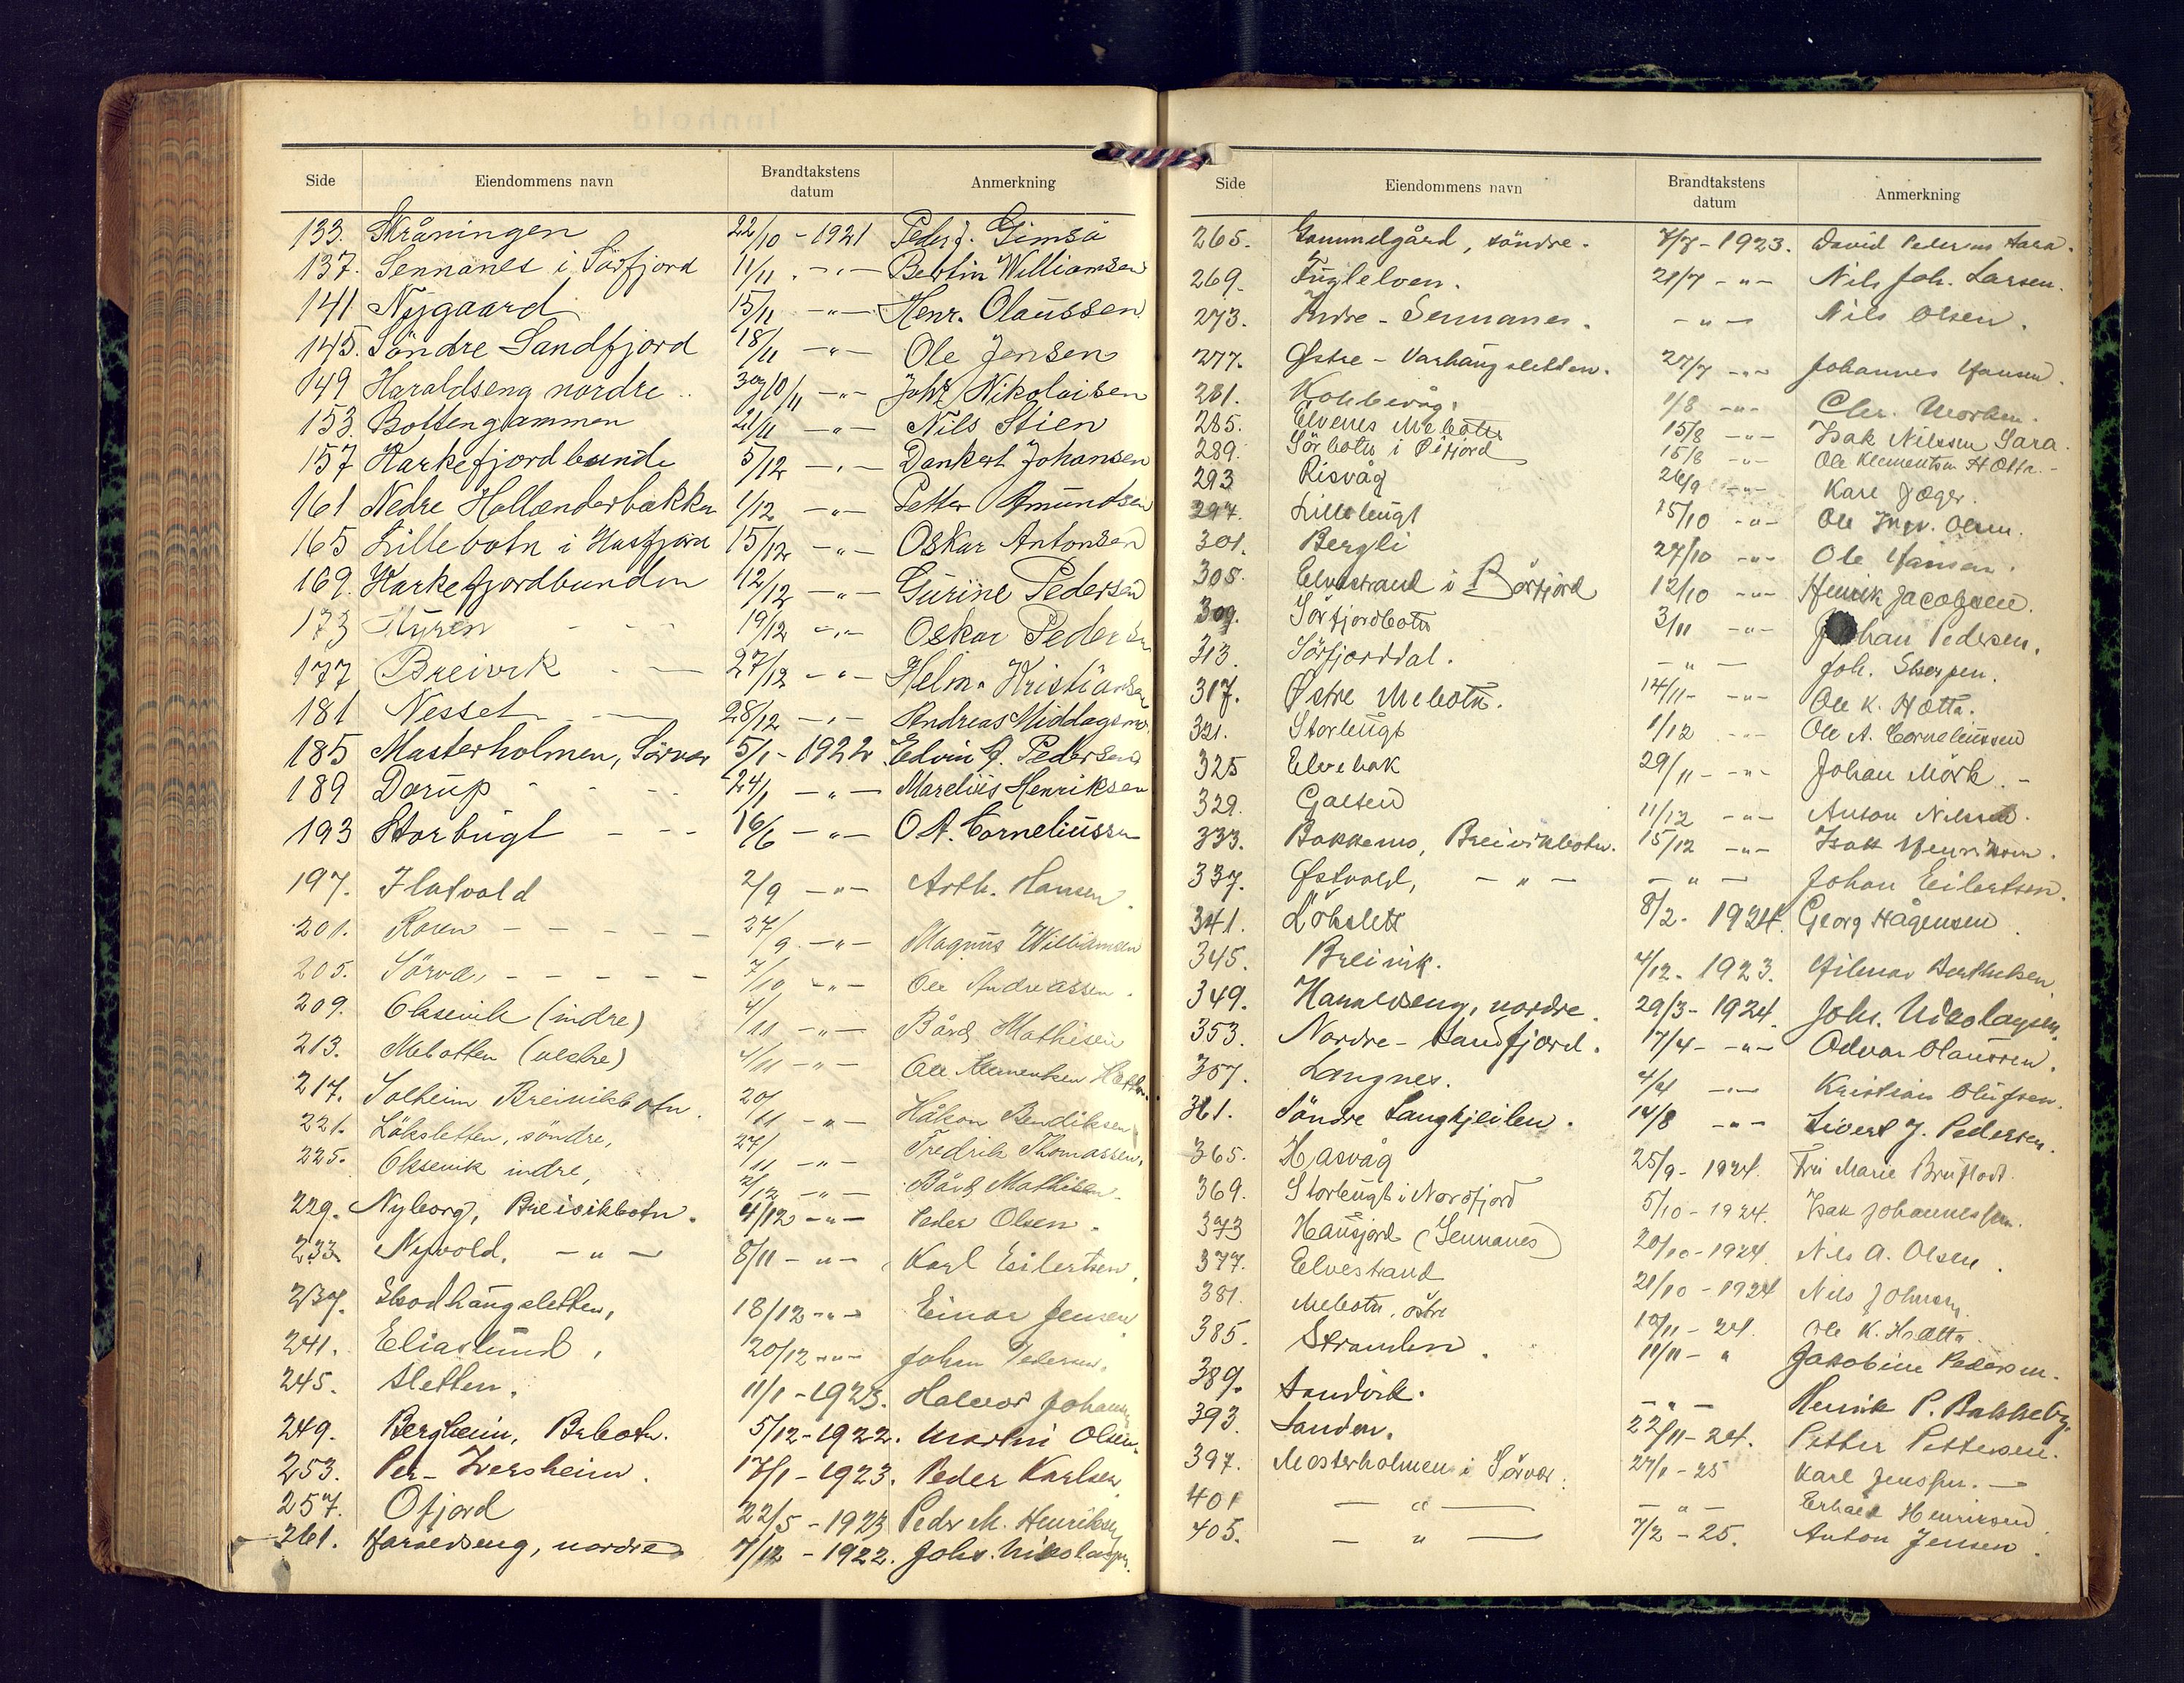 Side Eiendommens navn Brandtakstens datum Anmerkning
133. Skråningen 22/10 - 1921 Peder J. Gimså
137. Sennanes i Sörfjord 11/11 - " - Bertin Williamsen
141 Nygaard 15/11 - " - Henr. Olaussen
145. Söndre Sandfjord 18/11 - " - Ole Jensen
149 Haraldseng nordre 30/10/11 - " - Johs Nikolaisen
153. Bottengammen 21/11 - " - Nils Stien
157 Karkefjordbunde 5/12 - " - Dankert Johansen
161 Nedre Hollænderbakken 1/12 - " - Petter Amundsen
165 Lillebotn i Hasfjord 15/12 - " - Oskar Antonsen
169. Karkefjordbunden 12/12 - " - Gurine Pedersen
173 19/12 - " - Oskar Pedersen
177 Breivik 27/12 - " - Helm. Kristiansen
181 Nesset 28/12 - " - Andreas
185 Masterholmen, Sörvær 5/1 - 1922 Edvin J. Pedersen
189 Dorup 24/1 - " - Marelius Henriksen
193 Storbugt 16/6 - " - O A. Corneliussen
197. Flatvold 2/9 - " - Arth. Hansen.
201. Roren 27/9 - " - Magnus Williamsen
205. Sörvær, 7/10 - " - Ole Andreassen.
209. Oksevik (indre) 4/11 - " - Bård Mathisen
213. Mebotten (vestre) 4/11 - " - Ole Klementsen Hætta.
217. Solheim Breivikbotn. 20/11 - " - Håkon Bendiksen
221. Löksletten, söndre, 27/11 - " - Fredrik Thomassen.
225. Oksevik indre, 2/12 - " - Bård Mathisen
229. Nyborg, Breivikbotn. 4/12 - " - Peder Olsen.
233. Nyvold, - " - 8/11 - " - Karl Eilertsen.
237. Skodhaugsletten, 18/12 - " - Einar Jensen
241. Eliaslund, 20/12 - " - Johan Pedersen.
245. Sletten. 11/1 - 1923. Halvor Johansen
249. Bergheim, Brbotn. 5/12 - 1922. Martin Olsen.
253. Per-Iversheim. 17/1 - 1923. Peder Karlsen
257. Ofjord 22/5 - 1923 Peder M. Henriksen
261. Haraldseng, nordre 7/12 - 1922. Johs. Nikolaysen.
Side Eiendommens navn Brandtakstens datum Anmerkning
265. Gammelgård, söndre. 7/7 - 1923. David Pedersen Sara.
269. Fuglelven. 21/7 - " - Nils Joh. Larsen.
273. Indre-Sennanes. - " - Nils Olsen.
277. Østre-Varhaugsletten. 27/7 - " - Johannes Hansen.
281. Kobbevåg. 1/8 - " - Chr. Morken.
285. Elvenes Mebotn 15/8 - " - Isak Nilssen Sara.
289. Sörbotn i Öifjord 15/8 - " - Ole Klementsen Hætta.
293 Risvåg 26/9 - " - Karl Jæger.
297. Lillebugt 15/10 - " - Ole Ingv. Olsen.
301. Bergli 27/10 - " - Ole Hansen.
305. Elvestrand i Börfjord 12/10 - " - Henrik Jacobsen.
309. Sörfjordbotn 3/11 - " - Johan Pedersen.
313. Sörfjorddal. - " - Joh. Skorpen.
317. Østre Mebotn. 14/11 - " - Ole K. Hætta.
321. Storbugt 1/12 - " - Ole A. Corneliussen
325 Elvebak 29/11 - " - Johan Mörk.
329. Galten 11/12 - " - Anton Nilssen.
333. Bakkemo, Breivikbotn. 15/12 - " - Isak Henriksen.
337. Østvold, - " - - " - Johan Eilertsen.
341. Lökslett 8/2 - 1924. Georg Hågensen
345. Breivik. 4/12 - 1923. Hilmar Berthelsen.
349. Haraldseng, nordre. 29/3 - 1924. Johs. Nikolaysen.
353. Nordre-Sandfjord. 17/4 - " - Odvar Olaussen.
357. Langnes. 4/4 - " - Kristian Olufsen.
361. Söndre Langkjeilen. 14/8 - " - Sivert J. Pedersen.
365. Hasvåg 25/9 - 1924. Fru Marie Bruflodt.
369. Storbugt i Norsfjord 5/10 - 1924. Isak Johannessen.
373 Hausjord (Sennanes) 20/10 - 1924. Nils A. Olsen.
377. Elvestrand 21/10 - 1924 Nils Johnsen.
381. Mebotn, östre 10/11 - 24. Ole K. Hætta.
385. Stranden. 11/11 - " Jakobine Pedersen.
389. Sandvik. - " - Henrik P. Bakkeby
393. Sanden. 22/11 - 24. Petter Pettersen.
397. Masterholmen i Sörvær. 27/1 - 25 Karl Jenssen.
401 - " - - " - Erhard Henriksen
405. - " - 7/2 - 25. Anton Jensen.